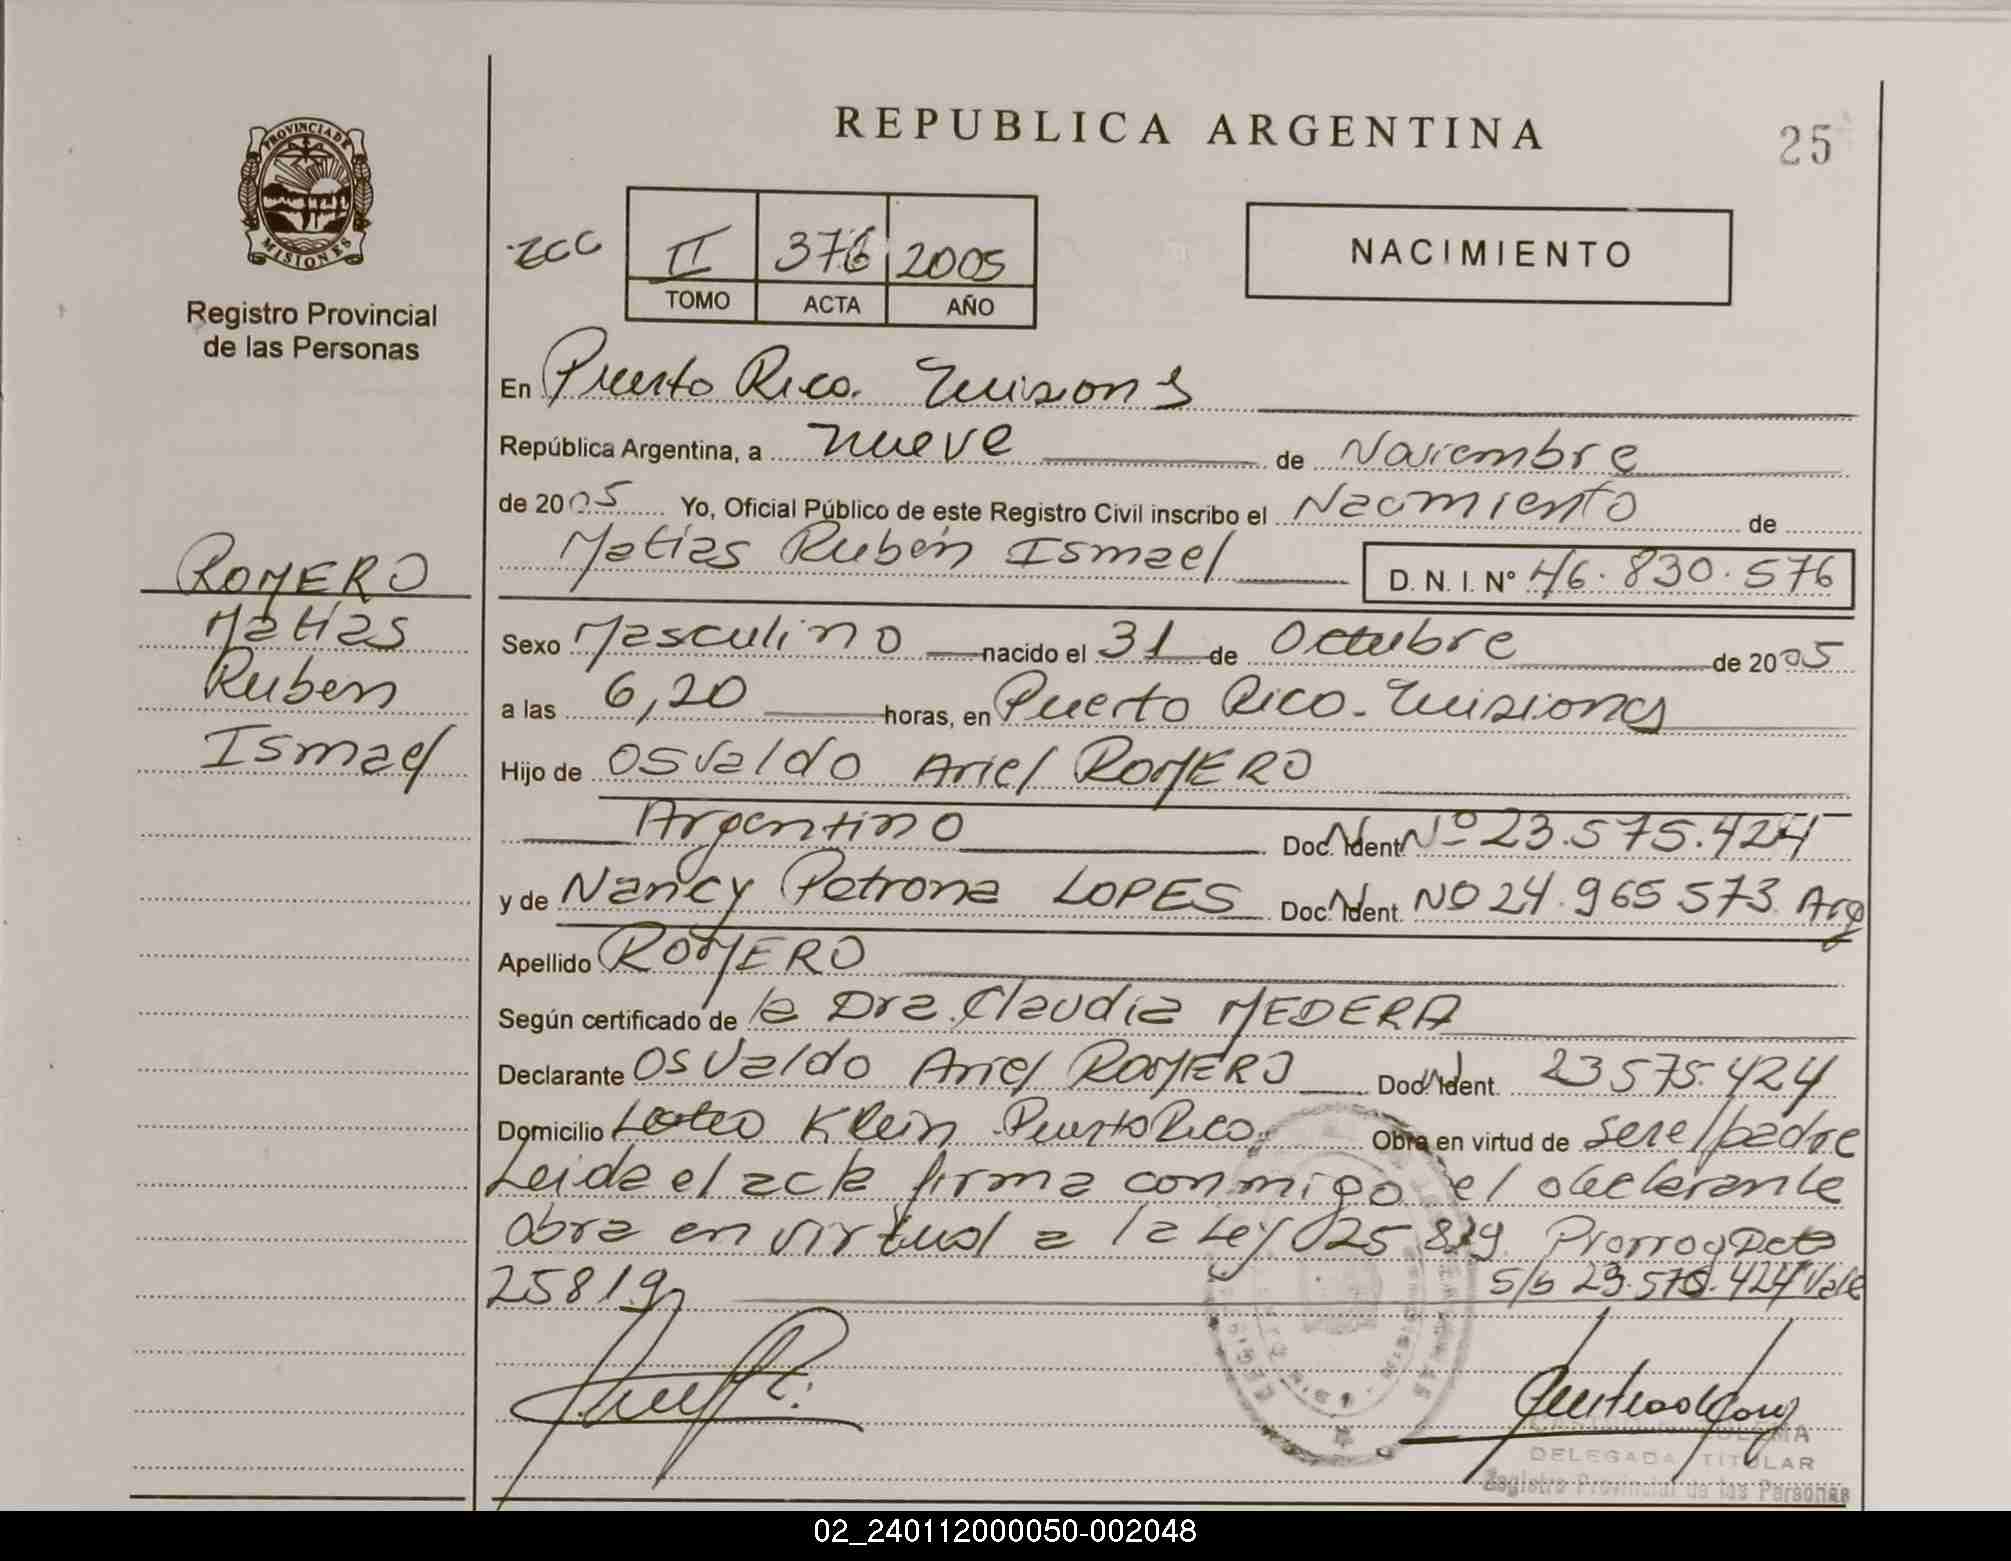 REPUBLICA ARGENTINA
25
PROVINCIA DE MISIONES
Registro Provincial
de las Personas
II 376 2005
TOMO ACTA AÑO
NACIMIENTO
En Puerto Rico. Misiones
República Argentina, a nueve de Noviembre
de 2005 Yo, Oficial Público de este Registro Civil inscribo el Nacimiento de
Matías Rubén Ismael D. N. I. N° 46.830.576
ROMERO
Matías
Ruben
Ismael
Sexo Masculino nacido el 31 de Octubre de 2005
a las 6,20 horas, en Puerto Rico - Misiones
Hijo de Osvaldo Ariel ROMERO
Argentino Doc. Ident. Nº 23.575.424
y de Nancy Petrona LOPES Doc. Ident. Nº 24.965 573. Arg
Apellido ROMERO
Según certificado de la Dra. Claudia MEDERA
Declarante Osvaldo Ariel ROMERO Doc. Ident. 23 575.424
Domicilio Loteo Klein Puerto Rico. Obra en virtud de ser el padre
Leida el acta firma conmigo el declarante
obra en virtud a la Ley 25 819
25819
S/b 23.575.424 Vale
DELEGADA TITULAR
Registro Provincial de las Personas
02_240112000050-002048